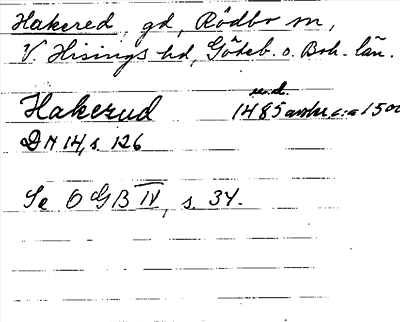 Hakered, gd, Rödbo sn,
V. Hisings hd, Göteb. o. Boh. län.
u.d.
Hakerud 1485 avskr c:a 1500
DN 14, s. 126
Se OGB IV, s. 34.